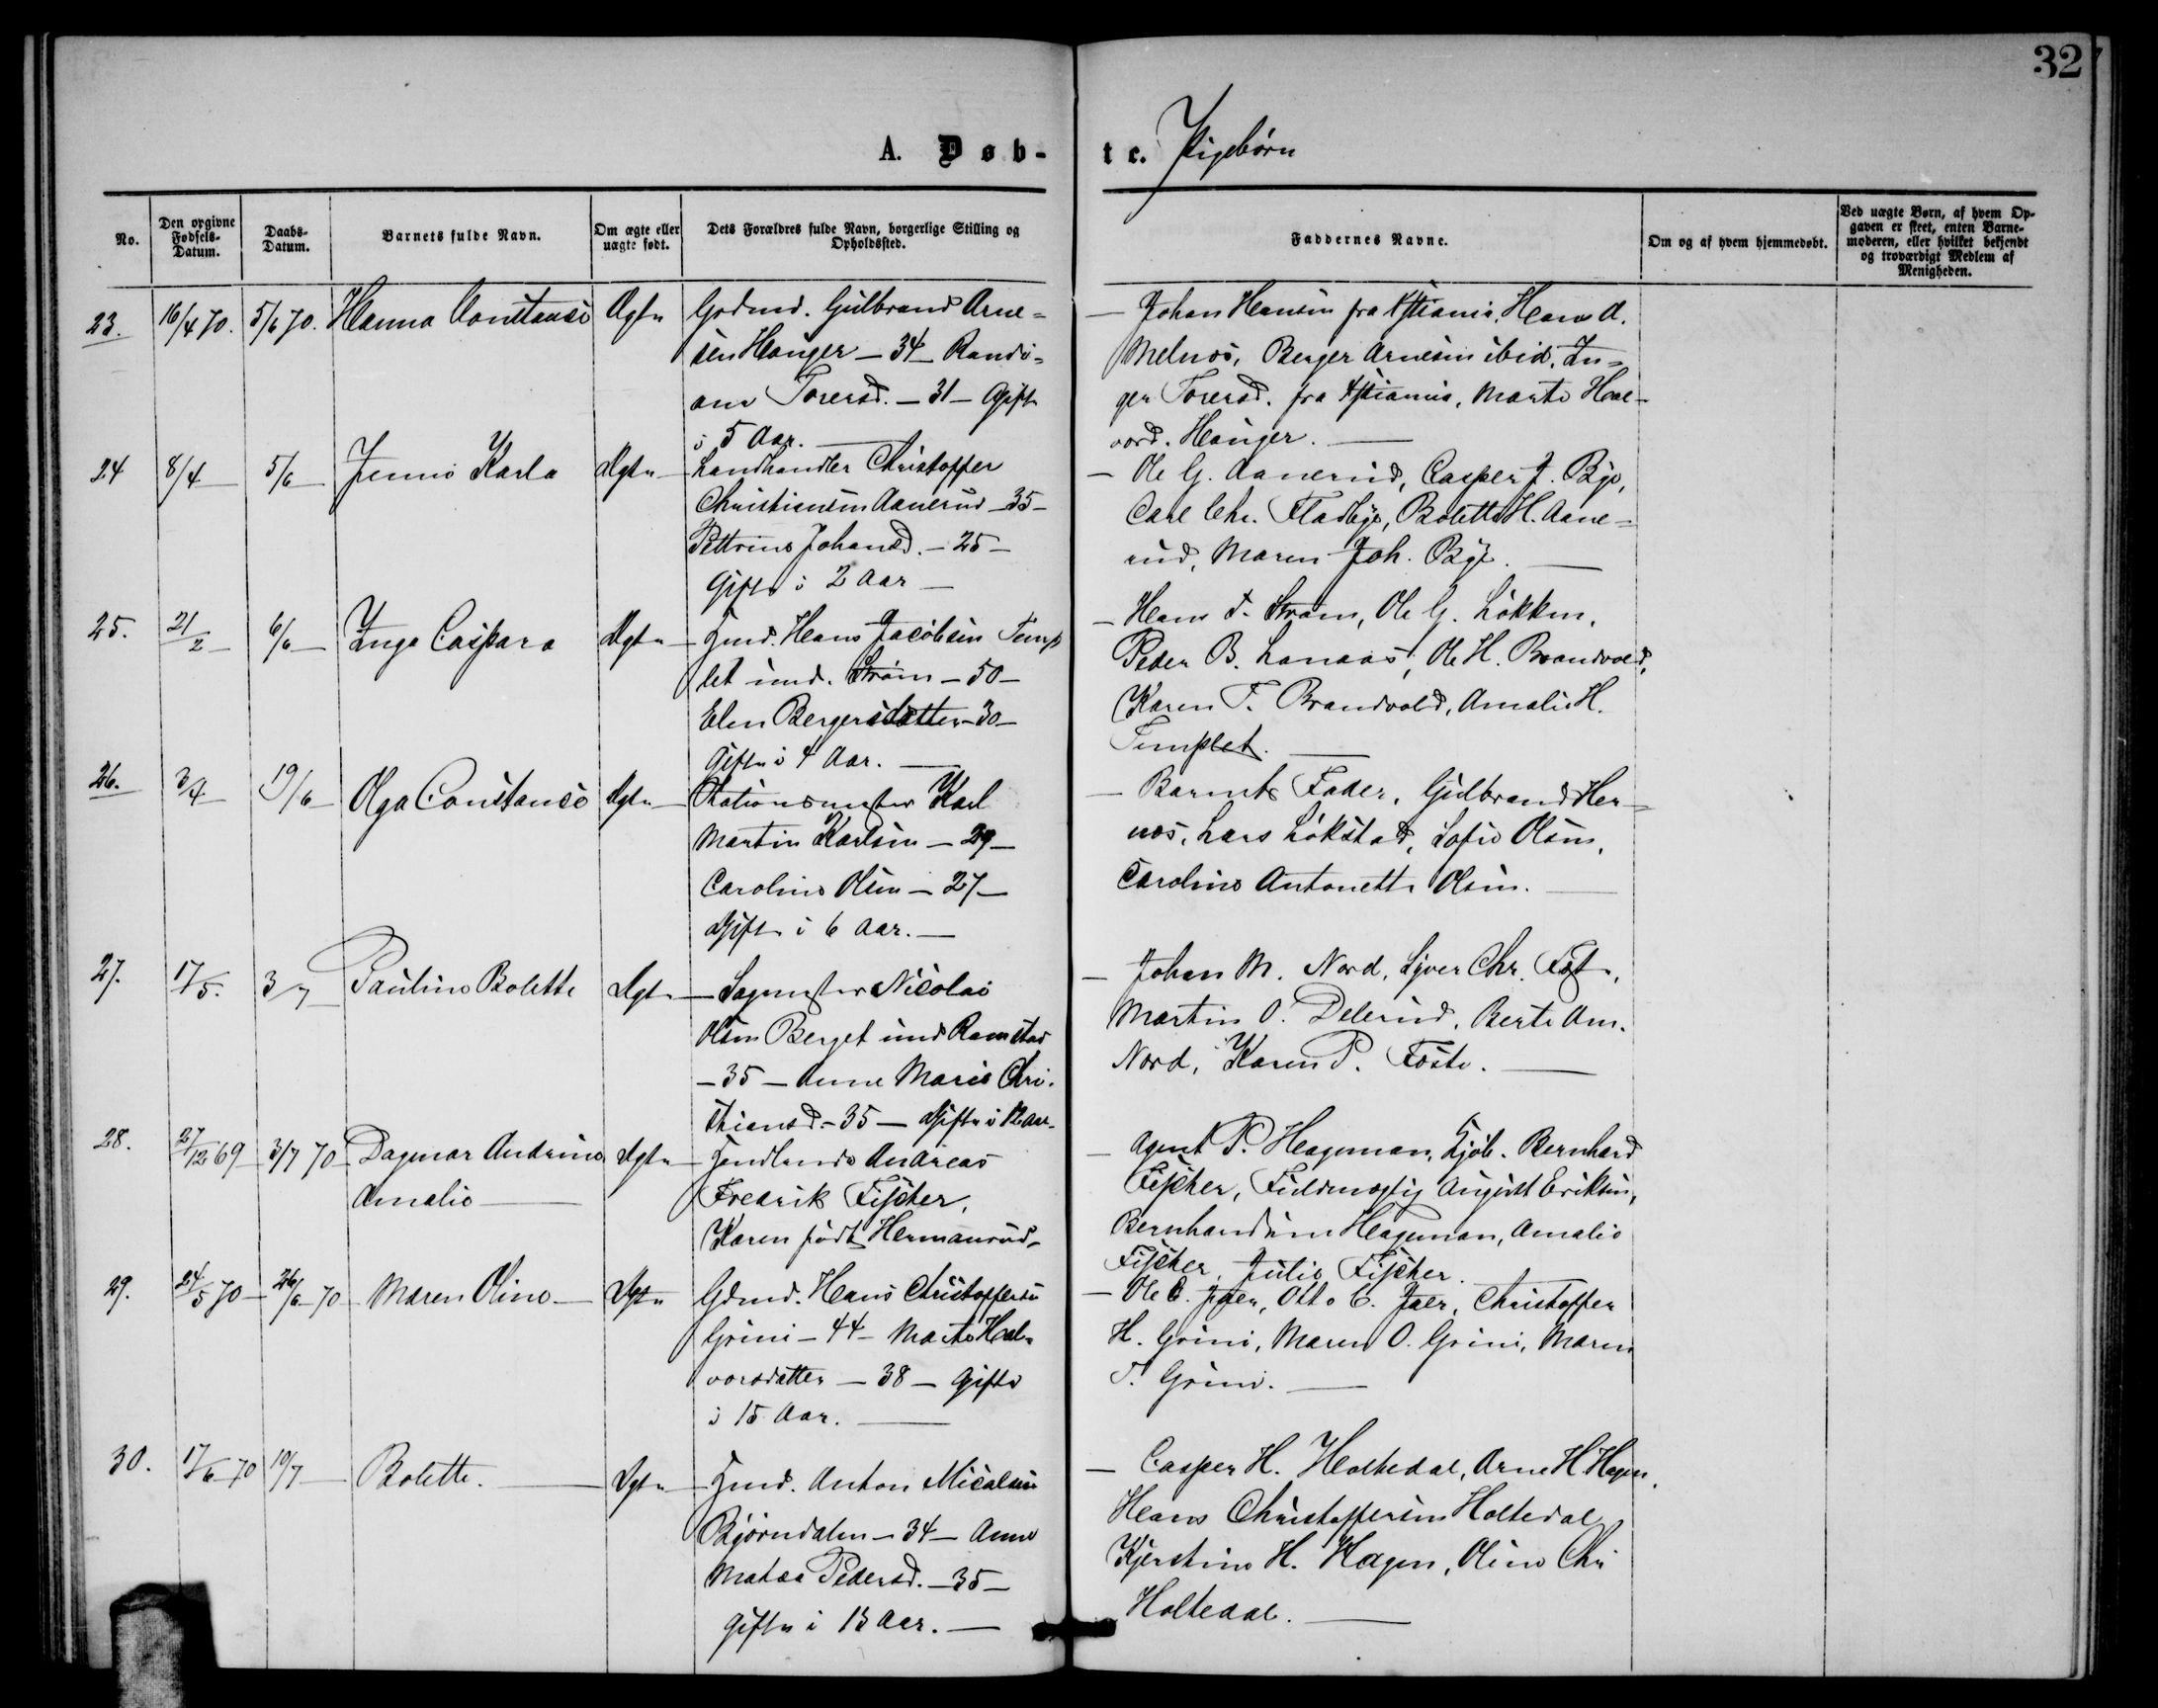 32
A. Døb-
te. Pigebørn
No.
Den opgivne Fødsels-Datum.
Daabs-Datum.
Barnets fulde Navn.
Om ægte eller uægte født.
Dets Forældres fulde Navn, borgerlige Stilling og Opholdssted.
Faddernes Navne.
Om og af hvem hjemmedøbt.
Ved uægte Børn, af hvem Opgaven er skeet, enten Barnemoderen, eller hvilket bekjendt og troværdigt Medlem af Menigheden.
23. 16/4 70. 5/6 70. Hanna Constanse Ægte
Grdmd. Gulbrand Arne=
sen Hanger - 34 - Randi=
ane Torersd. - 31 - Gifte
i 5 Aar.
- Johan Hansen fra Xstiania, Hans A.
Melnes, Berger Arnesen ibid, In=
ger Torersd. fra Xstiania, Marte Hal-
vord. Hanger.
24 8/4 5/6 Jennie Karla Ægte
Landhandler Christoffer
Christiansen Aanerud - 35 -
Pettrine Johansd. - 25 -
Gifte i 2 Aar -
- Ole G. Aanerud, Casper J. Bye,
Carl Chr. Fladbye, Bolette H. Aane=
rud, Maren Joh. Bye.
25. 21/2 6/6 Inga Caspara Ægte
Hmd. Hans Jacobsen Temp
let und. Strøm - 50 -
Elen Bergersdatter - 30 -
Gifte i 4 Aar.
- Hans T. Strøm, Ole G. Løkken,
Peder B. Lanaas, Ole H. Brandvold,
Karen T. Brandvold, Amalie H.
Templet.
26. 3/4 19/6 Olga Constanse Ægte
Stationsmester Karl
Martin Karlsen - 29 -
Caroline Olsen - 27 -
Gifte i 6 Aar.
- Barnets Fader, Gulbrand Her=
nes, Lars Løkstad, Sofie Olsen,
Caroline Antonette Olsen.
27. 17/5. 3/7 Pauline Bolette Ægte
Sagmester Nicolai
Olsen Berget und Ramstad
- 35 - Anne Marie Chri-
stiansd. - 35 - Gifte i 12 Aar.
- Johan M. Nord, Syver Chr. Foste,
Martin O. Delerud, Berte Am.
Nord, Karen P. Foste.
28. 27/12 69 3/7 70 Dagmar Andrine Ægte
Amalie
Handlende Andreas
Fredrik Fischer,
Karen født Hermansrud.
- Agent P. Hageman, Kjøb. Bernhard
Fischer, Fuldmægtig August Eriksen,
Hageman, Amalie
Fischer, Julie Fischer.
29. 24/5 70 26/6 70 Maren Oline Ægte
Gdmd. Hans Christoffersen
Grini - 44 - Marte Hal-
vorsdatter - 38 - Gifte
i 15 Aar.
- Ole C. Jaer, Otto C. Jaer, Christoffer
H. Grini, Maren O. Grini, Maren
T. Grini.
30. 17/6 70 10/7 Bolette. Ægte
Hmd. Anton Micalsen
Bjørndalen - 34 - Anne
Matea Pedersd. - 35 -
Gifte i 13 Aar.
- Casper H. Holtedal, Arne H. Hagen,
Hans Christoffersen Holtedal,
Kjerstine H. Hagen, Oline Chr.
Holtedal.